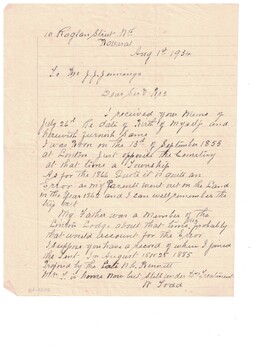 10 Raglan Street Nth
Ballarat
Aug 1st 1934
To Mr J.J. Jennings
Dear Sir &
I received your Memo of
July 26th Re date of Birth of Myself and
herewith furnish Same
I was Born on the 13th of September 1853
at London Just opposite the Cemetery
at that time a Township
As for the 1866 Quote it is quite an
Error as my Parents went out on the Land
in the Year 186 and I can well remember the
big bell
My Father was a Member of the
Lodge about that time probably
that would account for the Error
I suppose you have a Record of when I joined
the Tent In August 15th 1885
Proposed by the Late
Mrs T is home Now but still under Drs Treatment
W. Todd